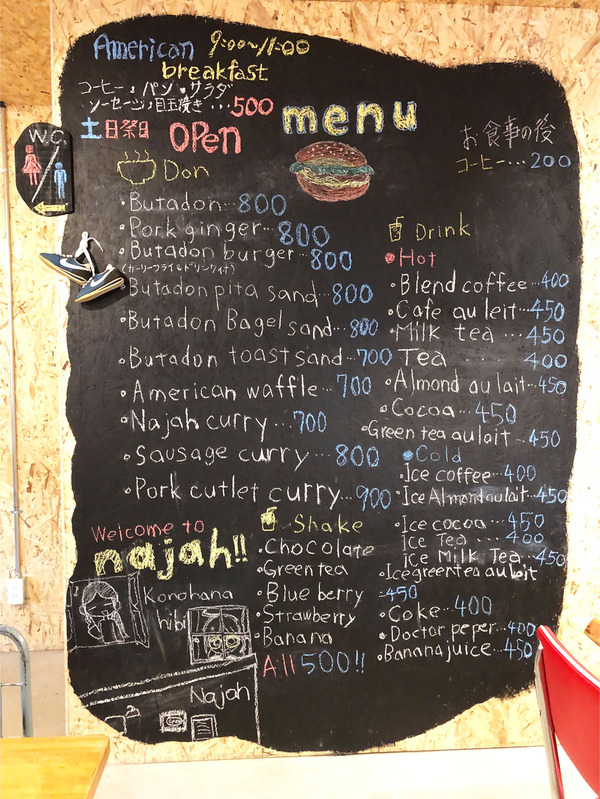 American 9:00~11:00
breakfast
コーヒー,パン,サラダ
ソーセージ,目玉焼き...500
土日祭日 OPen
menu
お食事の後
コーヒー...200
W.C.
Don
•Butadon...800
•Pork ginger...800
•Butadon burger...800
(カーリーフライ&ドリンク付)
•Butadon pita sand...800
•Butadon Bagel sand...800
•Butadon toast sand...700
•American waffle...700
•Najah curry...700
•Sausage curry...800
•Pork cutlet curry...900
Drink
•Hot
•Blend coffee...400
•Cafe au lait...450
•Milk tea...450
Tea 400
•Almond au lait...450
•Cocoa...450
•Green tea au lait...450
•Cold
•Ice coffee...400
•Ice Almond au lait...450
•Ice cocoa...450
Ice Tea...400
Ice Milk Tea...450
•Ice green tea au lait
...450
•Coke...400
•Doctor peper...400
•Banana juice...450
Shake
•Chocolate
•Green tea
•Blue berry
•Strawberry
•Banana
All 500!!
Welcome to
najah!!
Konohana
hibi
Najah